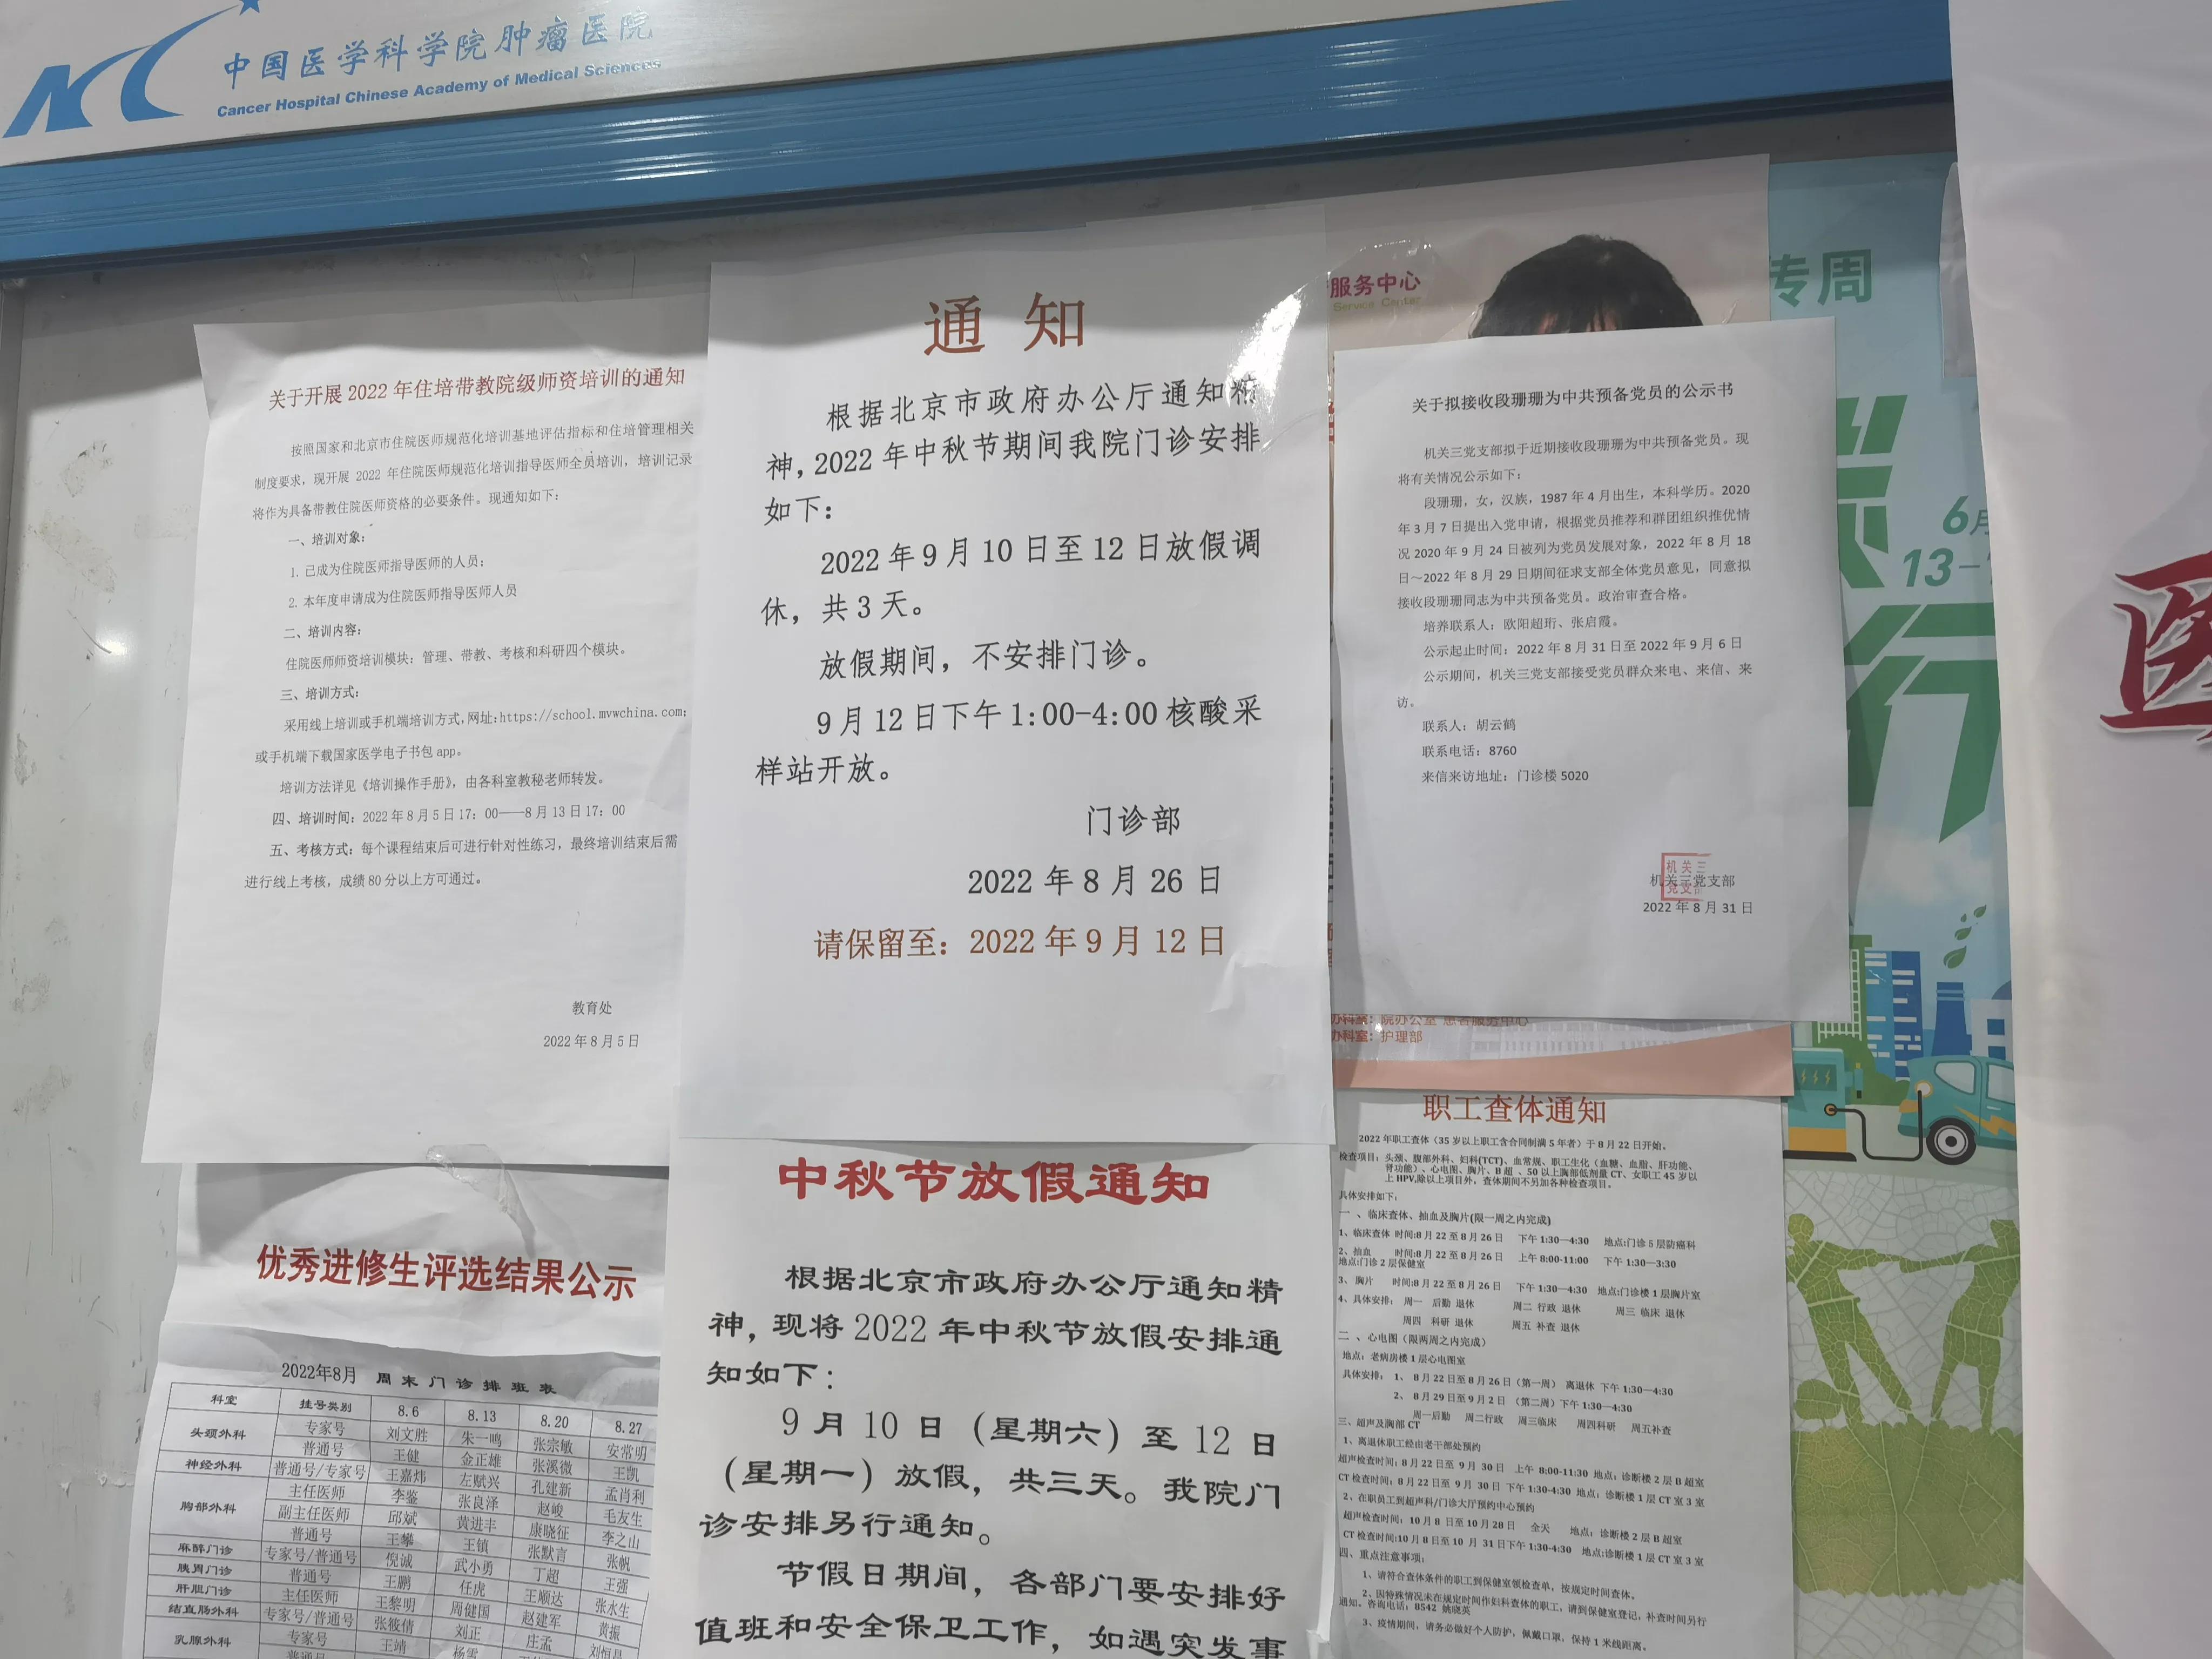 中国医学科学院肿瘤医院
Cancer Hospital Chinese Academy of Medical Sciences
关于开展 2022 年住培带教院级师资培训的通知
按照国家和北京市住院医师规范化培训基地评估指标和住培管理相关
制度要求，现开展 2022 年住院医师规范化培训指导医师全员培训，培训记录
将作为具备带教住院医师资格的必要条件。现通知如下：
一、培训对象：
1. 已成为住院医师指导医师的人员；
2. 本年度申请成为住院医师指导医师人员
二、培训内容：
住院医师师资培训模块：管理、带教、考核和科研四个模块。
三、培训方式：
采用线上培训或手机端培训方式，网址：https://school.mvwchina.com；
或手机端下载国家医学电子书包 app。
培训方法详见《培训操作手册》，由各科室教秘老师转发。
四、培训时间：2022 年 8 月 5 日 17：00——8 月 13 日 17：00
五、考核方式：每个课程结束后可进行针对性练习，最终培训结束后需
进行线上考核，成绩 80 分以上方可通过。
教育处
2022 年 8 月 5 日
优秀进修生评选结果公示
2022年8月 周末门诊排班表
科室 挂号类别 8.6 8.13 8.20 8.27
头颈外科 专家号 刘文胜 朱一鸣 张宗敏 安常明
普通号 王健 金正雄 张溪微 王凯
神经外科 普通号/专家号 王嘉炜 左赋兴 孔建新 孟肖利
胸部外科 主任医师 李鉴 张良泽 赵峻 毛友生
副主任医师 邱斌 黄进丰 康晓征 李之山
普通号 王攀 王镇 张默言 张帆
麻醉门诊 专家号/普通号 倪诚 武小勇 丁超 王强
胰胃门诊 普通号 王鹏 任虎 王顺达 张水生
肝胆门诊 主任医师 王黎明 周健国 赵建军 黄振
结直肠外科 专家号/普通号 张筱倩 刘正 庄孟 刘恒昌
乳腺外科 专家号 王靖 杨雪
普通号
通 知
根据北京市政府办公厅通知精
神，2022 年中秋节期间我院门诊安排
如下：
2022 年 9 月 10 日至 12 日放假调
休，共 3 天。
放假期间，不安排门诊。
9 月 12 日下午 1:00-4:00 核酸采
样站开放。
门诊部
2022 年 8 月 26 日
请保留至：2022 年 9 月 12 日
中秋节放假通知
根据北京市政府办公厅通知精
神，现将 2022 年中秋节放假安排通
知如下：
9 月 10 日（星期六）至 12 日
（星期一）放假，共三天。我院门
诊安排另行通知。
节假日期间，各部门要安排好
值班和安全保卫工作，如遇突发事
服务中心
Service Center
关于拟接收段珊珊为中共预备党员的公示书
机关三党支部拟于近期接收段珊珊为中共预备党员。现
将有关情况公示如下：
段珊珊，女，汉族，1987 年 4 月出生，本科学历。2020
年 3 月 7 日提出入党申请，根据党员推荐和群团组织推优情
况 2020 年 9 月 24 日被列为党员发展对象，2022 年 8 月 18
日～2022 年 8 月 29 日期间征求支部全体党员意见，同意拟
接收段珊珊同志为中共预备党员。政治审查合格。
培养联系人：欧阳超珩、张启霞。
公示起止时间：2022 年 8 月 31 日至 2022 年 9 月 6 日
公示期间，机关三党支部接受党员群众来电、来信、来
访。
联系人：胡云鹤
联系电话：8760
来信来访地址：门诊楼 5020
机关三党支部
2022 年 8 月 31 日
办科室：院办公室 患者服务中心
办科室：护理部
职工查体通知
2022 年职工查体（35 岁以上职工含合同制满 5 年者）于 8 月 22 日开始。
检查项目：头颈、腹部外科、妇科(TCT)、血常规、职工生化（血糖、血脂、肝功能、
肾功能）、心电图、胸片、B 超 、50 以上胸部低剂量 CT、女职工 45 岁以
上 HPV,除以上项目外，查体期间不另加各种检查项目。
具体安排如下：
一 、临床查体、抽血及胸片(限一周之内完成)
1、临床查体 时间:8 月 22 至 8 月 26 日 下午 1:30—4:30 地点:门诊 5 层防癌科
2、抽血 时间:8 月 22 至 8 月 26 日 上午 8:00-11:00 下午 1:30—3:30
地点:门诊 2 层保健室
3、 胸片 时间:8 月 22 至 8 月 26 日 下午 1:30—4:30 地点:门诊楼 1 层胸片室
4、具体安排： 周一 后勤 退休 周二 行政 退休 周三 临床 退休
周四 科研 退休 周五 补查 退休
二 、心电图（限两周之内完成）
地点：老病房楼 1 层心电图室
具体安排： 1、 8 月 22 日至 8 月 26 日（第一周） 离退休 下午 1:30—4:30
2、 8 月 29 日至 9 月 2 日（第二周）下午 1:30—4:30
周一后勤 周二行政 周三临床 周四科研 周五补查
三、超声及胸部 CT
1、离退休职工经由老干部处预约
超声检查时间：8 月 22 日至 9 月 30 日 上午 8:00-11:30 地点：诊断楼 2 层 B 超室
CT 检查时间：8 月 22 日至 9 月 30 日 下午 1:30-4:30 地点：诊断楼 1 层 CT 室 3 室
2、在职员工到超声科/门诊大厅预约中心预约
超声检查时间：10 月 8 日至 10 月 28 日 全天 地点：诊断楼 2 层 B 超室
CT 检查时间:10 月 8 日至 10 月 31 日下午 1:30-4:30 地点:诊断楼 1 层 CT 室 3 室
四、重点注意事项：
1、请符合查体条件的职工到保健室领检查单，按规定时间查体。
2、因特殊情况未在规定时间作妇科查体的职工，请到保健室登记，补查时间另行
通知。咨询电话：8542 姚晓英
3、疫情期间，请务必做好个人防护，佩戴口罩，保持 1 米线距离。
传周
6月
13-
行
医